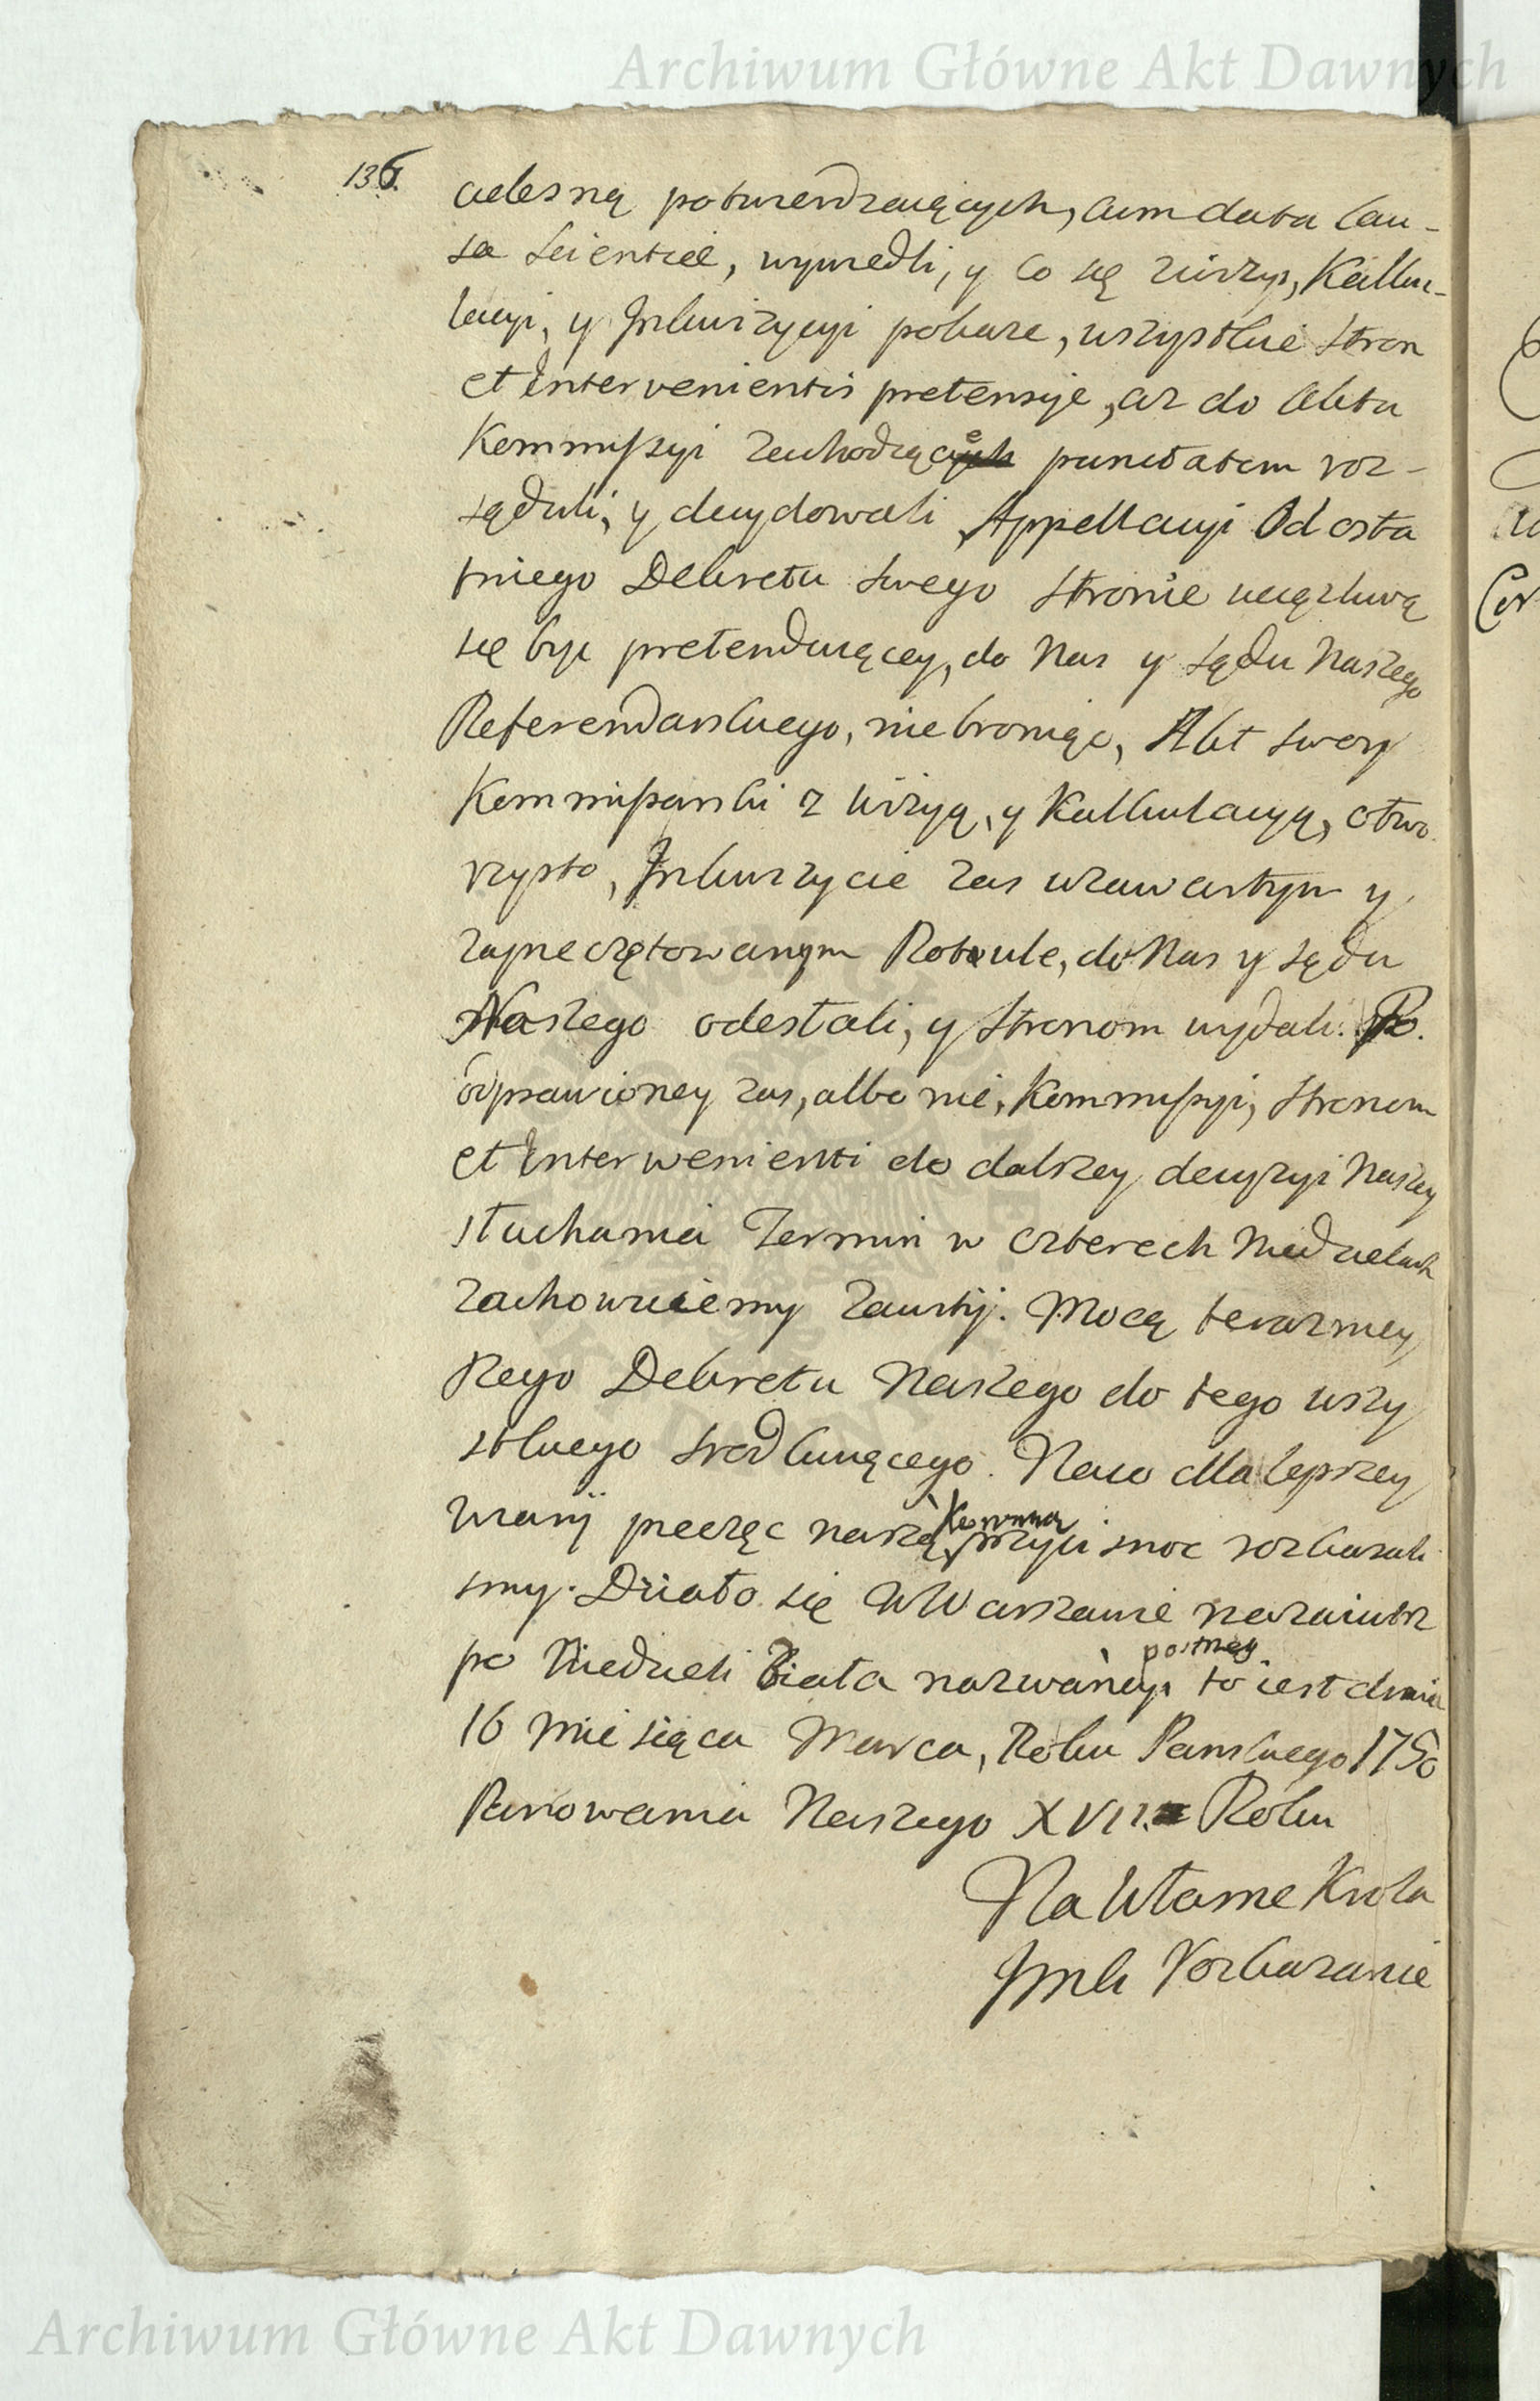 Archiwum Główne Akt Dawnych
136.
cielesną potwierdzaiących, cum data cau-
sa scientiæ, wywiedli, y co się z wizyi, Kalku-
lacyi, y Inkwizycyi pokaze, wszystkie stron
et Intervenientis pretensye, az do aktu
Kommissyi zachodzące punctatim roz-
sądzili, y decydowali Appellacyi od osta
tniego Dekretu swego stronie uciązliwą
się być pretenduiącey, do Nas y sądu Naszego
Referendarskiego, niebroniąc, Akt swoy
Kommissarski z wizyą, y Kalkulacyą, otwo
rzysto, Inkwizycie zas wzawartym y
zapieczętowanym Rotule, do Nas y sądu
Naszego odesłali, y stronom wydali. Po
odprawioney zas, albo nie, Kommissyi, stronom
et Interwenienti do dalszey decyzyi Naszey
słuchania Termin w czterech Niedzielach
zachowuiemy zawity. Mocą terazniey
szego Dekretu Naszego do tego wszy
stkiego srzodkuiącego. Naco dla lepszey
wiary pieczęc naszą Koronną przycisnoc rozkazali
smy. Działo się W Warszawie nazaiutrz
po Niedzieli Biała nazwaney postney to iest dnia
16 Miesiąca Marca, Roku Panskiego 1750
Panowania Naszego XVII Roku
Na Własne Krola
Jmci Rozkazanie
Archiwum Główne Akt Dawnych